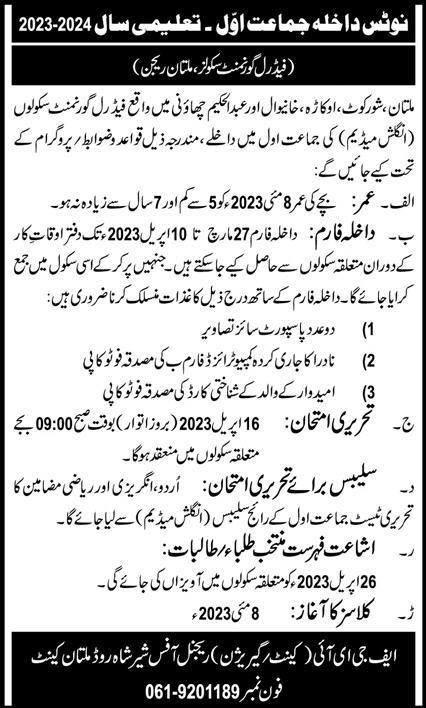 نوٹس داخلہ جماعت اوّل ۔ تعلیمی سال 2024-2023
(فیڈرل گورنمنٹ سکولز، ملتان ریجن)
ملتان، شورکوٹ، اوکاڑہ، خانیوال اور عبدالحکیم چھاؤنی میں واقع فیڈرل گورنمنٹ سکولوں
(انگلش میڈیم) کی جماعت اول میں داخلے، مندرجہ ذیل قواعد و ضوابط/ پروگرام کے
تحت کیے جائیں گے:
الف۔ عمر: بچے کی عمر 8 مئی 2023ء کو 5 سے کم اور 7 سال سے زیادہ نہ ہو۔
ب۔ داخلہ فارم: داخلہ فارم 27 مارچ تا 10 اپریل 2023ء تک دفتر اوقاتِ کار
کے دوران متعلقہ سکولوں سے حاصل کیے جاسکتے ہیں۔ جنہیں پر کر کے اسی سکول میں جمع
کرایا جائے گا۔ داخلہ فارم کے ساتھ درج ذیل کاغذات منسلک کرنا ضروری ہیں:
(1 دو عدد پاسپورٹ سائز تصاویر
(2 نادرا کا جاری کردہ کمپیوٹرائزڈ فارم ب کی مصدقہ فوٹو کاپی
(3 امیدوار کے والد کے شناختی کارڈ کی مصدقہ فوٹو کاپی
ج۔ تحریری امتحان: 16 اپریل 2023 (بروز اتوار) بوقت صبح 09:00 بجے
متعلقہ سکولوں میں منعقد ہوگا۔
د۔ سلیبس برائے تحریری امتحان: اُردو، انگریزی اور ریاضی مضامین کا
تحریری ٹیسٹ جماعت اول کے رائج سلیبس (انگلش میڈیم) سے لیا جائے گا۔
ر۔ اشاعت فہرست منتخب طلباء/ طالبات:
26 اپریل 2023ء کو متعلقہ سکولوں میں آویزاں کی جائے گی۔
ڑ۔ کلاسز کا آغاز: 8 مئی 2023ء
ایف جی ای آئی (کینٹ/ گیریژن) ریجنل آفس شیر شاہ روڈ ملتان کینٹ
فون نمبر 061-9201189